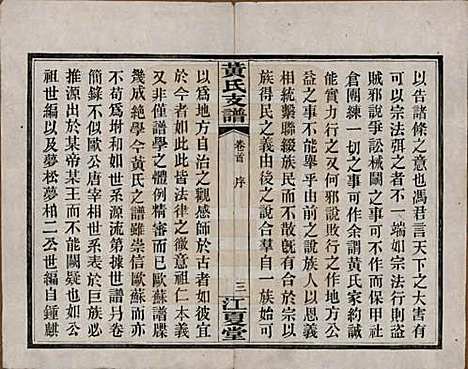 以告諸篠之意也馮君言天下之大
可以宗法弭之者不一端如宗法行則盜
賊邪說爭訟械鬭之事可不作而保甲社
倉團練一切之事可作余謂黃氏家約果
能實力行之又何邪說敗行之作地方公
益之事不能舉乎由前之說以宗法
相繫聯綴族民而不散旣有合於宗以
族得民之義由後之說合羣自一族始可
黃氏支譜
卷首
序
三
江夏堂
以爲地方自治之觀感師於古者如彼宜
於今者如此此皆法律之徵意祖仁本義
非僅譜學之體例精審也夫歐蘇譜牒
幾成絶學今黃氏之譜雖崇信歐蘇而亦
不苟爲坿和如世系源流第據世譜丹卷
簡錄不似歐公唐宰相世系表於巨族必
推源出於某帝某王而不能闕疑也又如
祖世編以及夢松夢梅二公世編自鍾麒